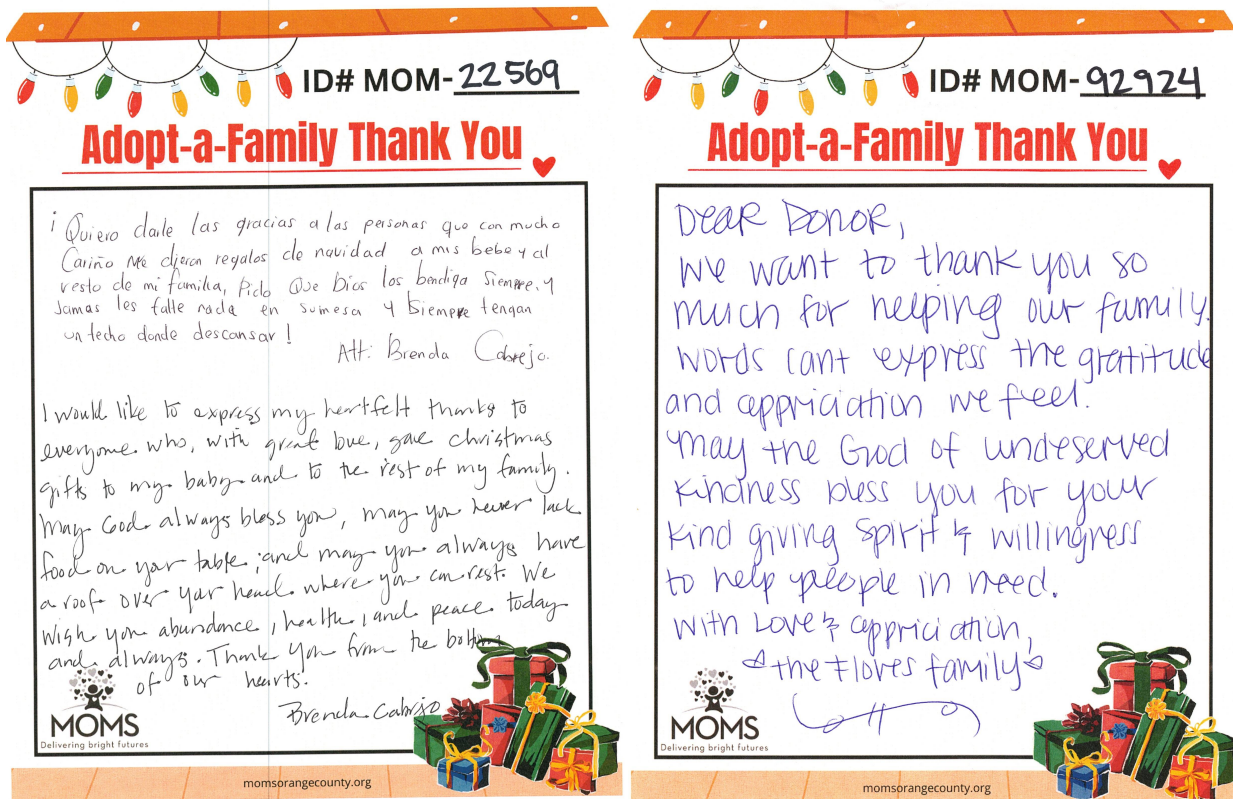 ID# MOM-22569
Adopt-a-Family Thank You
¡ Quiero darle las gracias a las personas que con mucho
Cariño me dieron regalos de navidad a mis bebe y al
resto de mi familia, Pido Que Dios los bendiga Siempre, y
Jamas les falte nada en sumesa y Siempre tengan
un techo donde descansar!
Att: Brenda Cabrejo.
I would like to express my heartfelt thanks to
everyone who, with great love, gave christmas
gifts to my baby and to the rest of my family.
May God always bless you, may you never lack
food on your table, and may you always have
a roof over your head where you can rest. We
wish you abundance, health, and peace today
and always. Thank you from the bottom
of our hearts.
Brenda Cabrejo
MOMS
Delivering bright futures
momsorangecounty.org
ID# MOM-92924
Adopt-a-Family Thank You
Dear Donor,
We want to thank you so
much for helping our family.
Words cant express the gratitude
and appriciation we feel.
May the God of undeserved
kindness bless you for your
kind giving spirit & willingness
to help people in need.
With Love & appriciation,
the Flores family
MOMS
Delivering bright futures
momsorangecounty.org